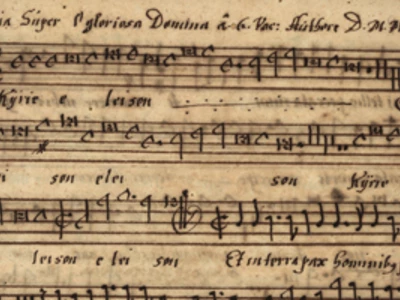 ia Super O gloriosa Domina â 6. Voc: Authore D. M. M
Kyrie e leison
i son elei son Kyrie
leison e lei son Et in terra pax hominibus